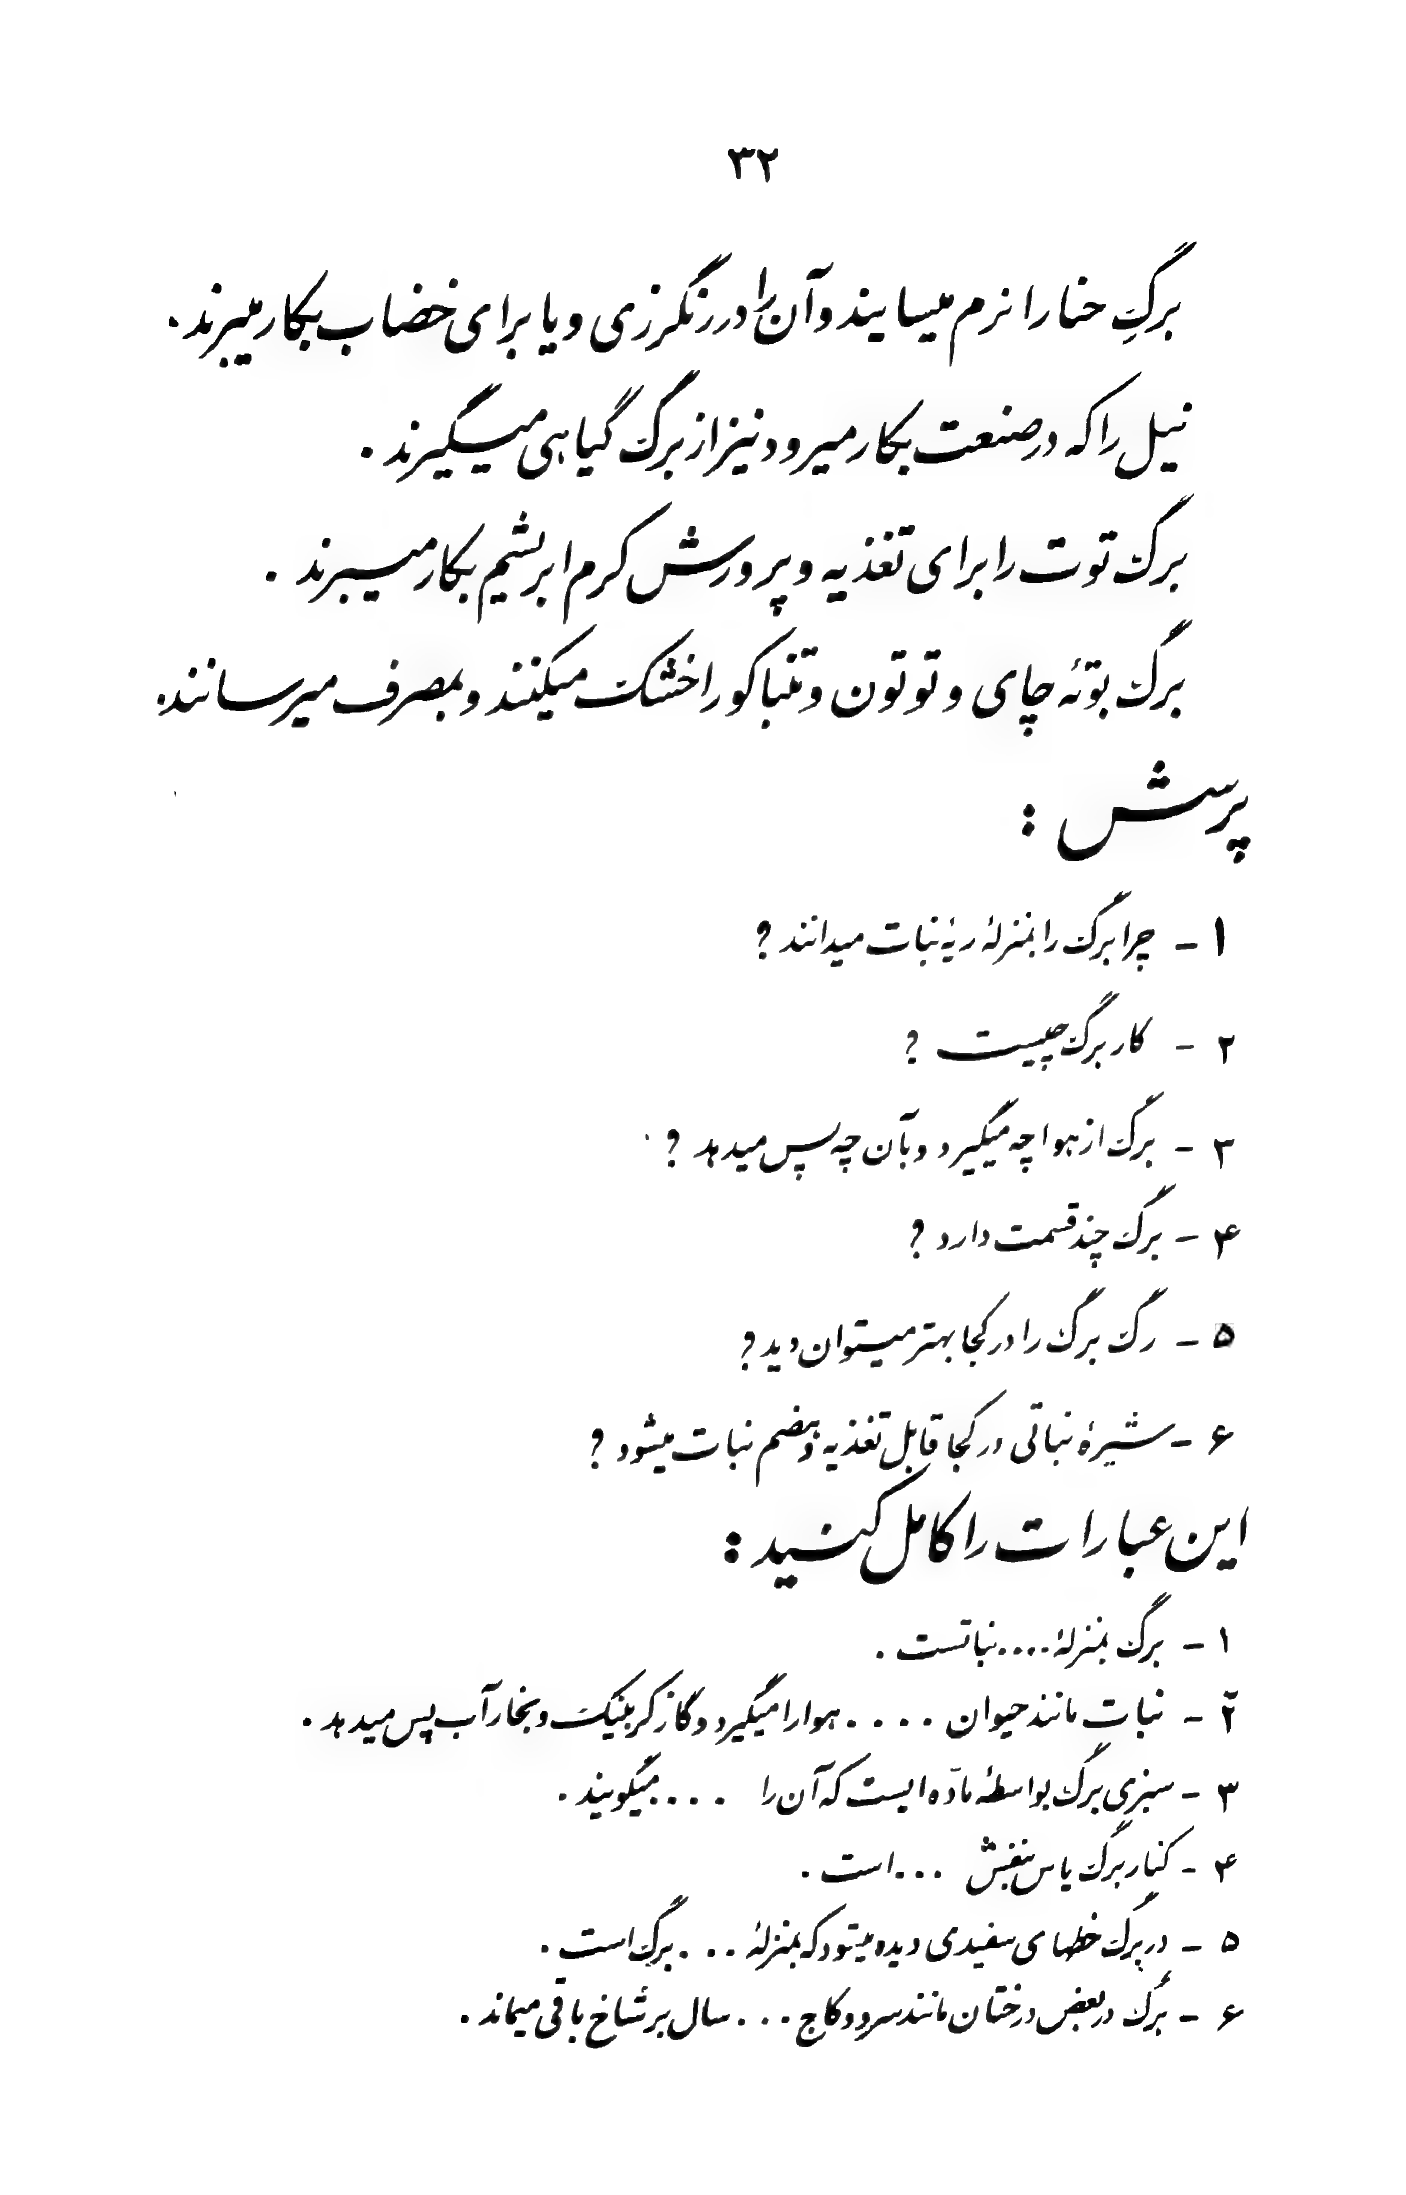 ۳۲
برگِ حنا را نرم میسایند و آن را در رنگرزی و یا برای خضاب بکار میبرند.
نیل را که در صنعت بکار میرود نیز از برگ گیاهی میگیرند.
برگ توت را برای تغذیه و پرورش کرم ابریشم بکار میبرند.
برگ بوتهٔ چای و توتون و تنباکو را خشک میکنند و بمصرف میرسانند.
پرسش :
۱ - چرا برگ را بمنزلهٔ ریهٔ نبات میدانند ؟
۲ - کار برگ چیست ؟
۳ - برگ از هوا چه میگیرد و بآن چه پس میدهد ؟
۴ - برگ چند قسمت دارد ؟
۵ - رگ برگ را در کجا بهتر میتوان دید ؟
۶ - شیرهٔ نباتی در کجا قابل تغذیه و هضم نبات میشود ؟
این عبارات را کامل کنید :
۱ - برگ بمنزلهٔ .... نباتست .
۲ - نباتِ مانند حیوان .... هوا را میگیرد و گاز کربنیک و بخار آب پس میدهد .
۳ - سبزی برگ بواسطهٔ مادّه ایست که آن را .... میگویند .
۴ - کنار برگ یاس بنفش ... است .
۵ - در برگ خطهای سفیدی دیده میشود که بمنزلهٔ ... برگ است .
۶ - برگ در بعض درختان مانند سرو و کاج ... سال بر شاخ باقی میماند .